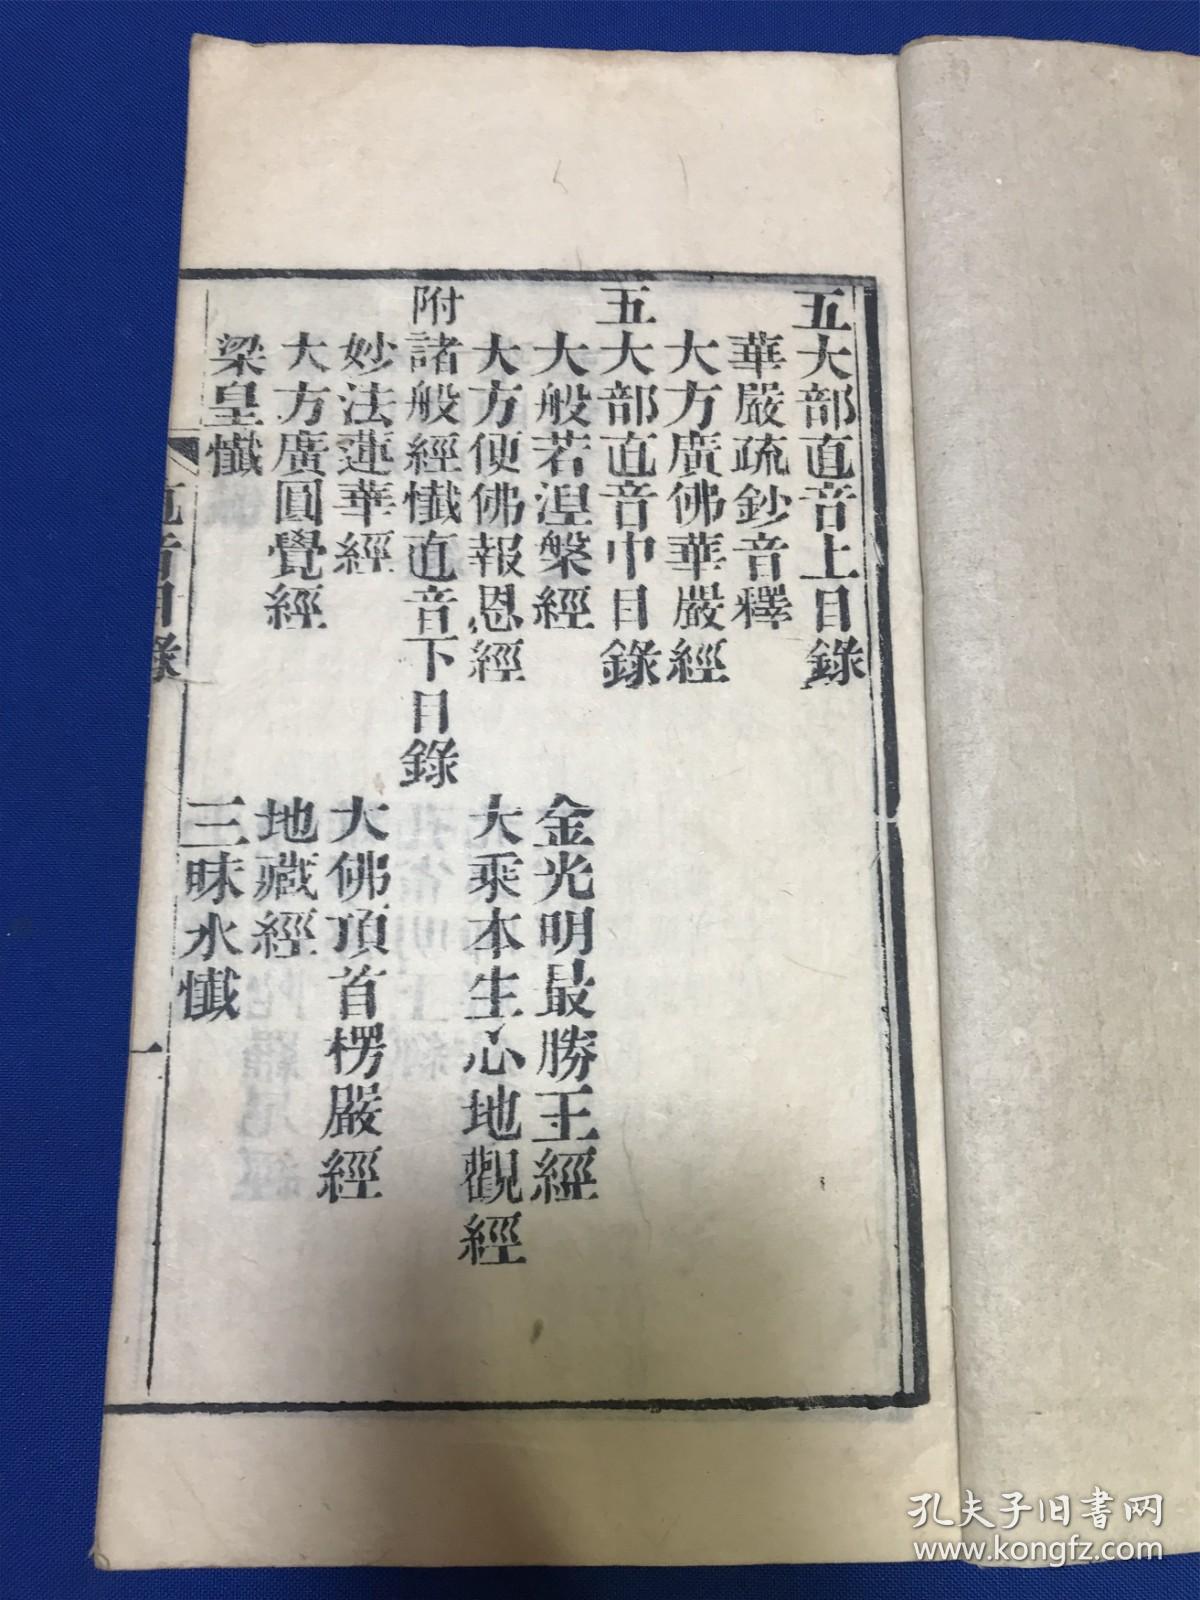 五大部直音上目錄
華嚴疏鈔音釋
大方廣佛華嚴經
五大部直音中目錄
大般若涅槃經 金光明最勝王經
大方便佛報恩經 大乘本生心地觀經
附諸般經懺直音下目錄
妙法蓮華經 大佛頂首楞嚴經
大方廣圓覺經 地藏經
梁皇懺 三昧水懺
直音目錄 一
孔夫子旧书网
www.kongfz.com